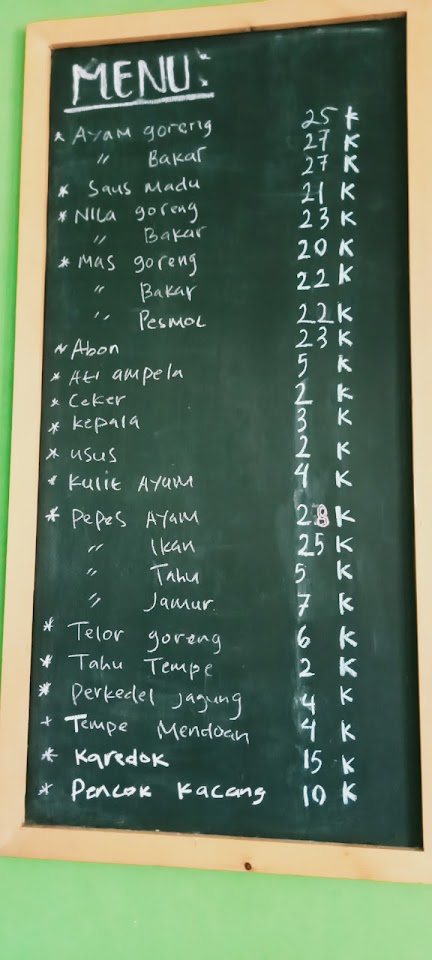 MENU:
* Ayam goreng 25 K
〃 Bakar 27 K
* Saus Madu 27 K
* Nila goreng 21 K
〃 Bakar 23 K
* Mas goreng 20 K
〃 Bakar 22 K
〃 Pesmol 22 K
* Abon 23 K
* Ati ampela 5 K
* Ceker 2 K
* Kepala 3 K
* usus 2 K
* Kulit Ayam 4 K
* Pepes Ayam 28 K
〃 Ikan 25 K
〃 Tahu 5 K
〃 Jamur. 7 K
* Telor goreng 6 K
* Tahu Tempe 2 K
* Perkedel jagung 4 K
+ Tempe Mendoan 4 K
* Karedok 15 K
* Pencok Kacang 10 K